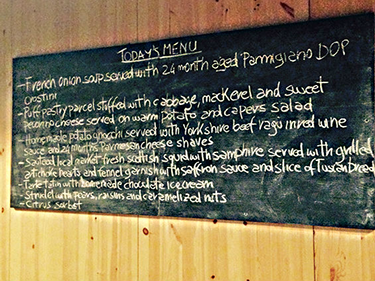 TODAY'S MENU
- French onion soup served with 24 month aged Parmigiano DOP
Crostini
- Puff pastry parcel stuffed with cabbage, mackerel and sweet
pecorino cheese served on warm potato and capers salad
- Homemade potato gnocchi served with Yorkshire beef ragu in red wine
sauce and 24 months Parmesan cheese shaves
- Seafood local market fresh scottish squid with samphire served with grilled
artichoke hearts and fennel garnish with saffron sauce and slice of Tuscan bread
- Tarte Tatin with homemade chocolate ice cream
- Strudel with pears, raisins and caramelized nuts
- Citrus sorbet